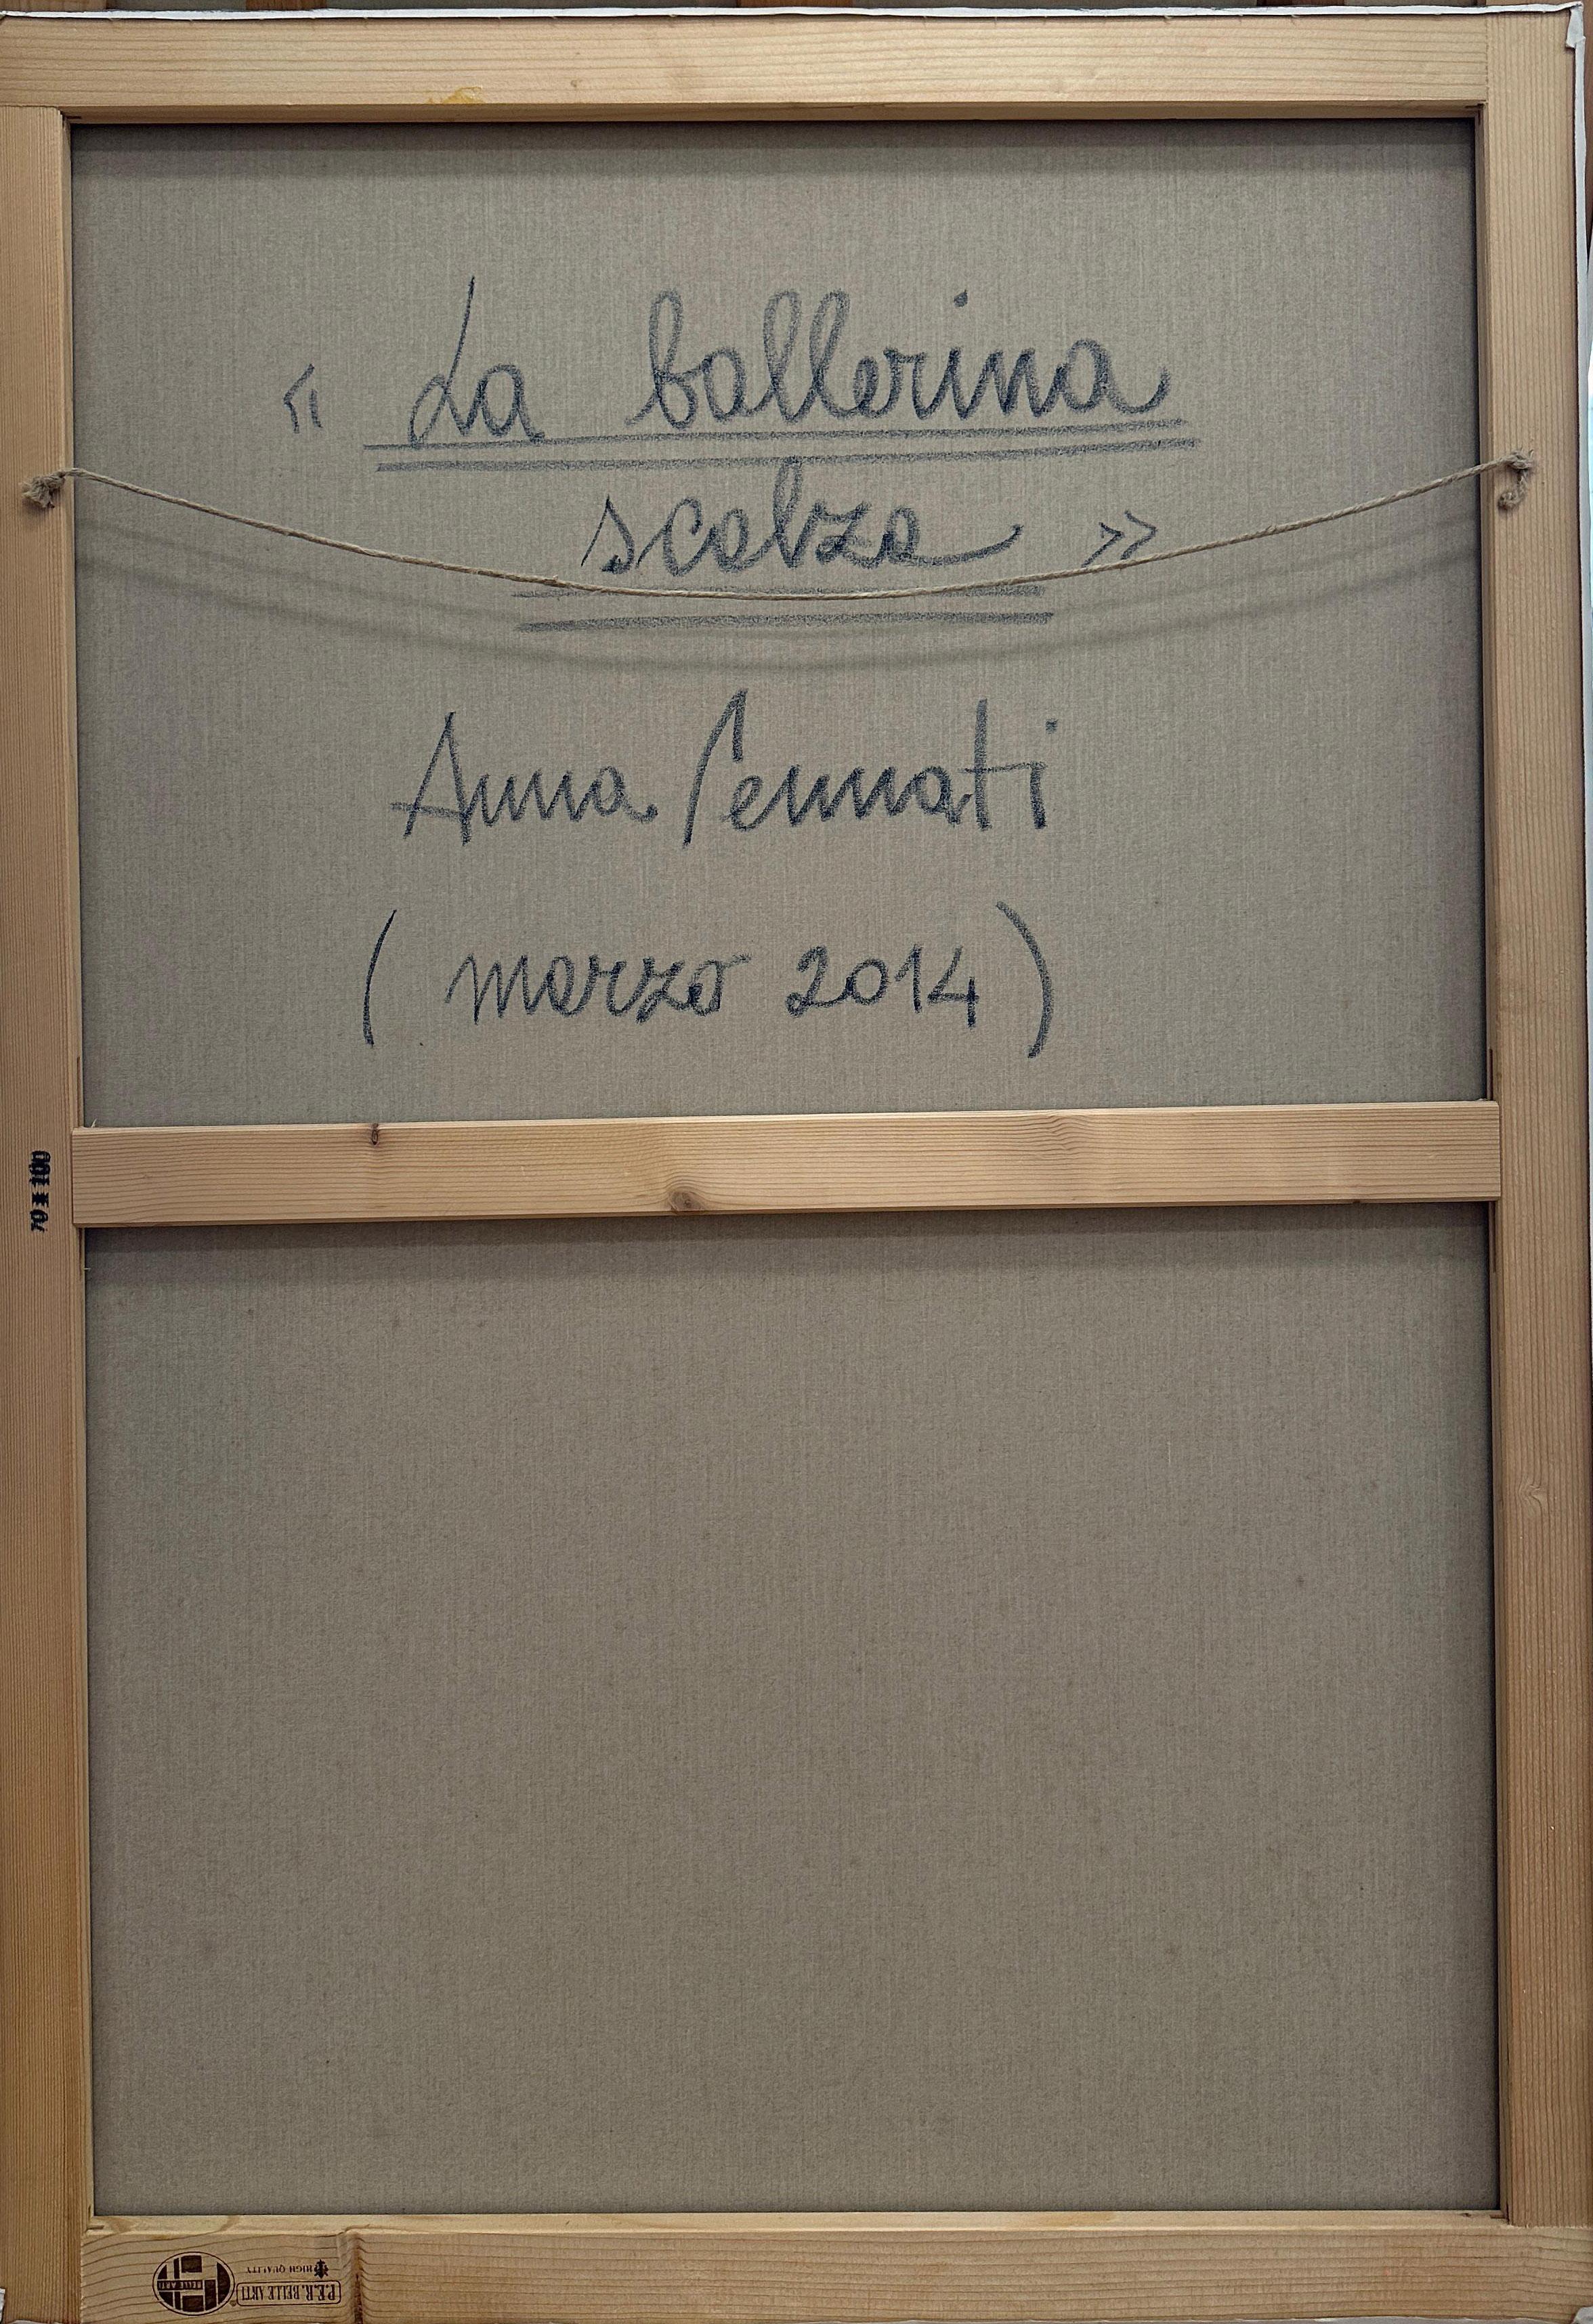 « La ballerina
scalza »
Anna Pennati
( marzo 2014 )
70 x 100
P.E.R. BELLE ARTI
HIGH QUALITY
BELLE ARTI